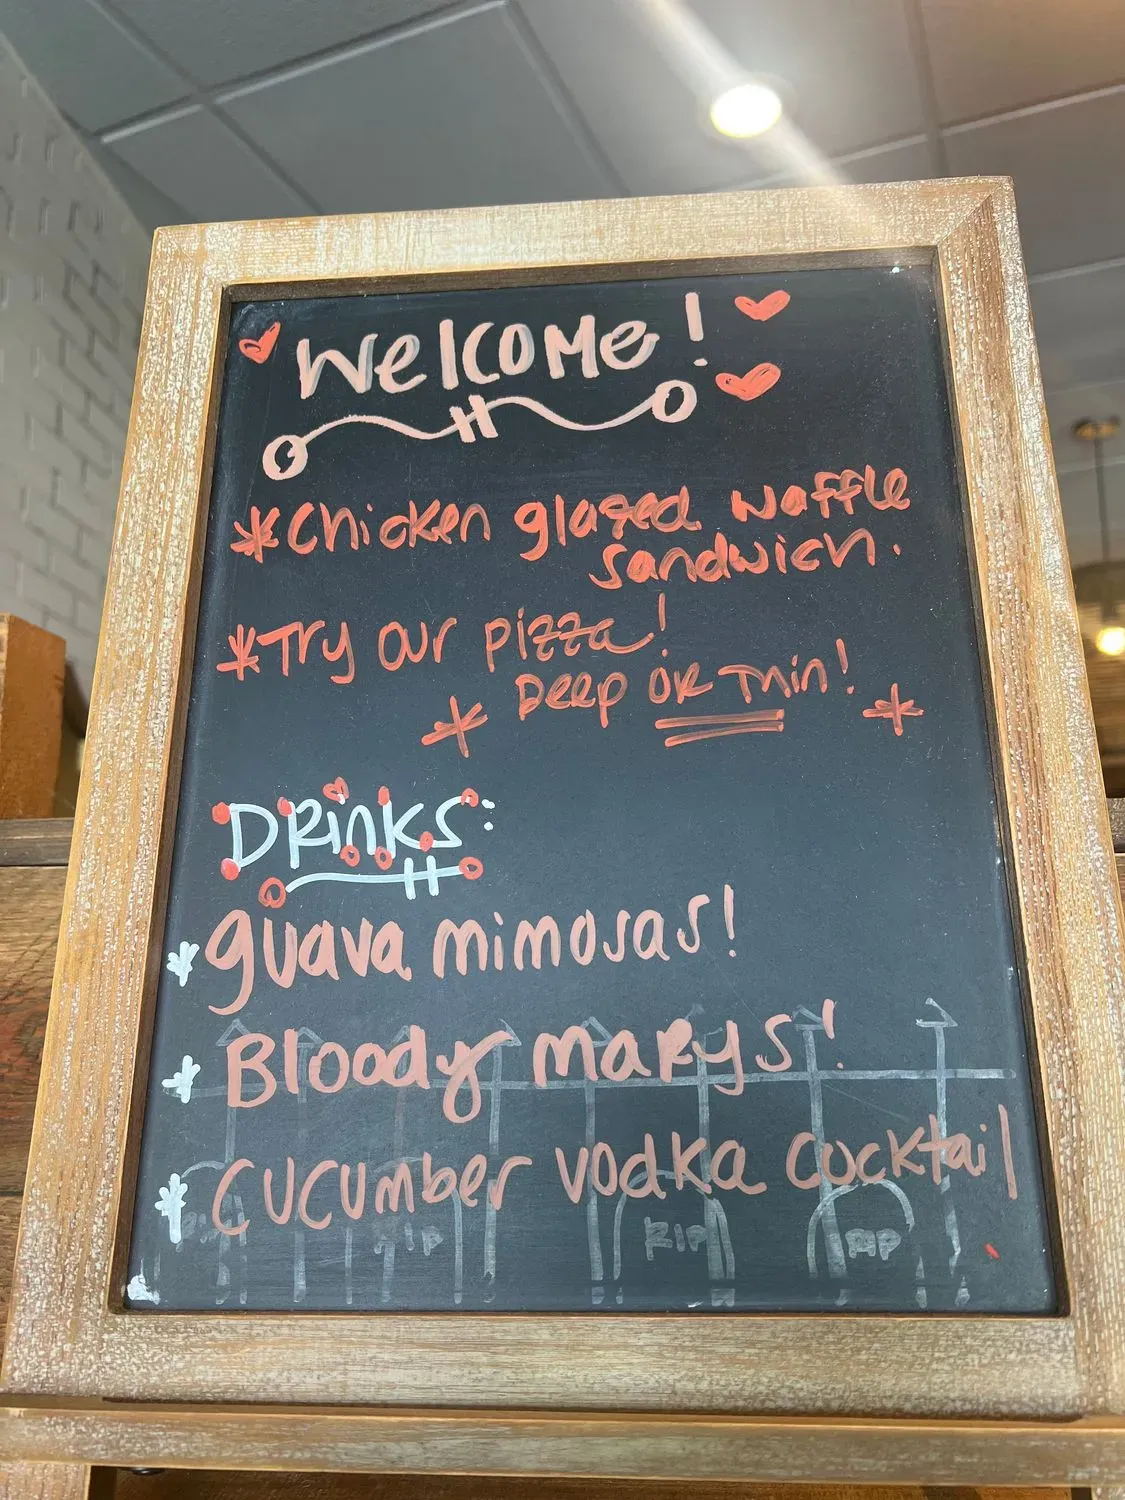 Welcome!
*Chicken glazed waffle
sandwich.
*Try our pizza!
* Deep OR Thin! *
DRinks:
* guava mimosas!
* Bloody maRys!
* cucumber vodka cocktail
RIP RIP RIP